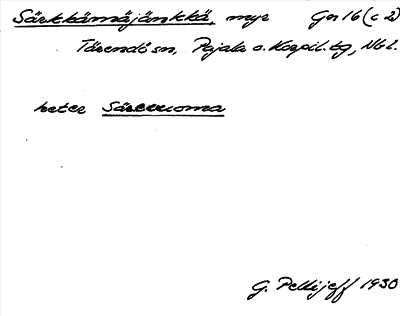 Särkkämäjänkkä, myr Ger 16 (c 2)
Tärendö sn, Pajala o. Korpil. tg, Nbl.
heter Särkuoma
G. Pellijeff 1930